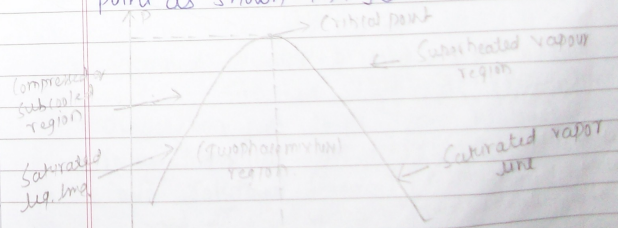 point as shown
P
Critical point
Superheated vapour
region
Compressed
subcooled
region
(Two phase mixture)
region
Saturated
liq. line
Saturated vapor
line